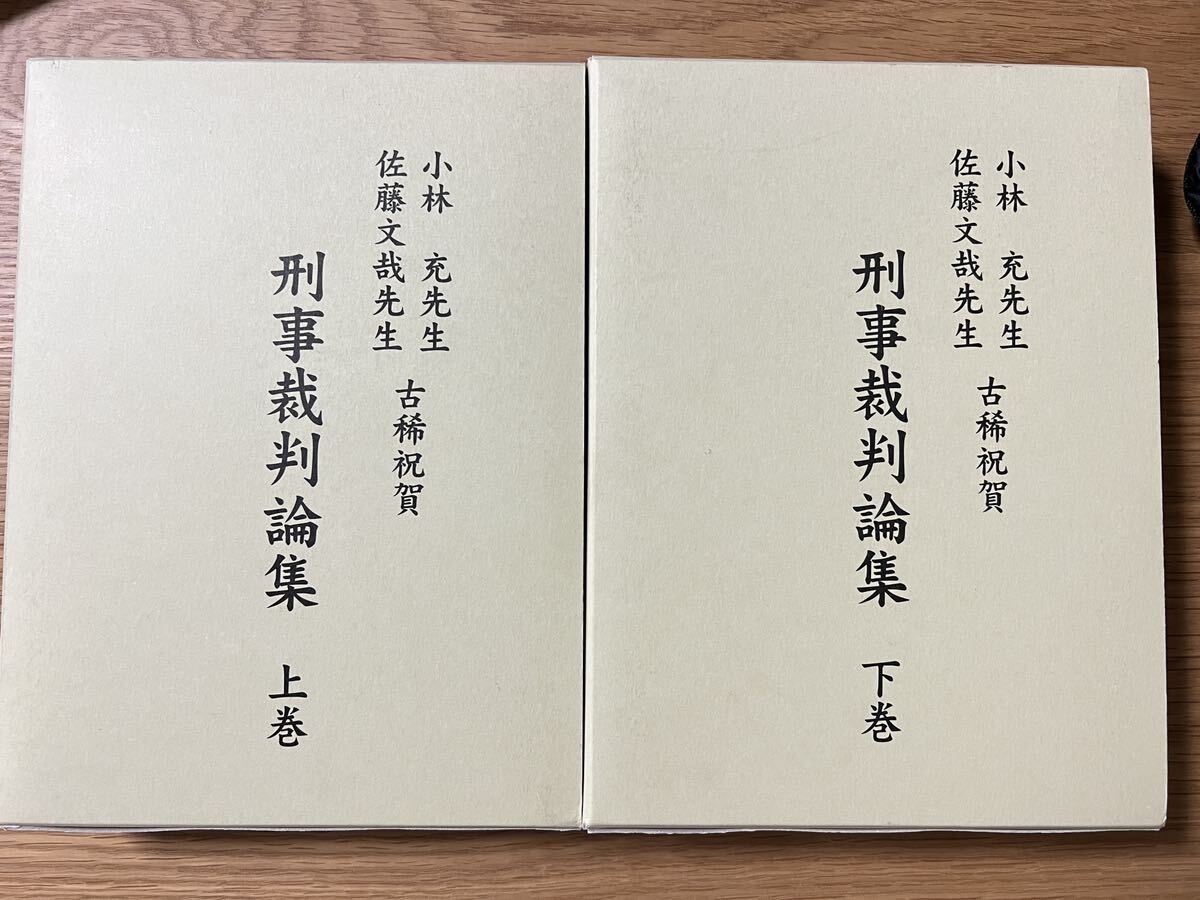 小林　充先生
佐藤文哉先生
古稀祝賀
刑事裁判論集　上巻
小林　充先生
佐藤文哉先生
古稀祝賀
刑事裁判論集　下巻